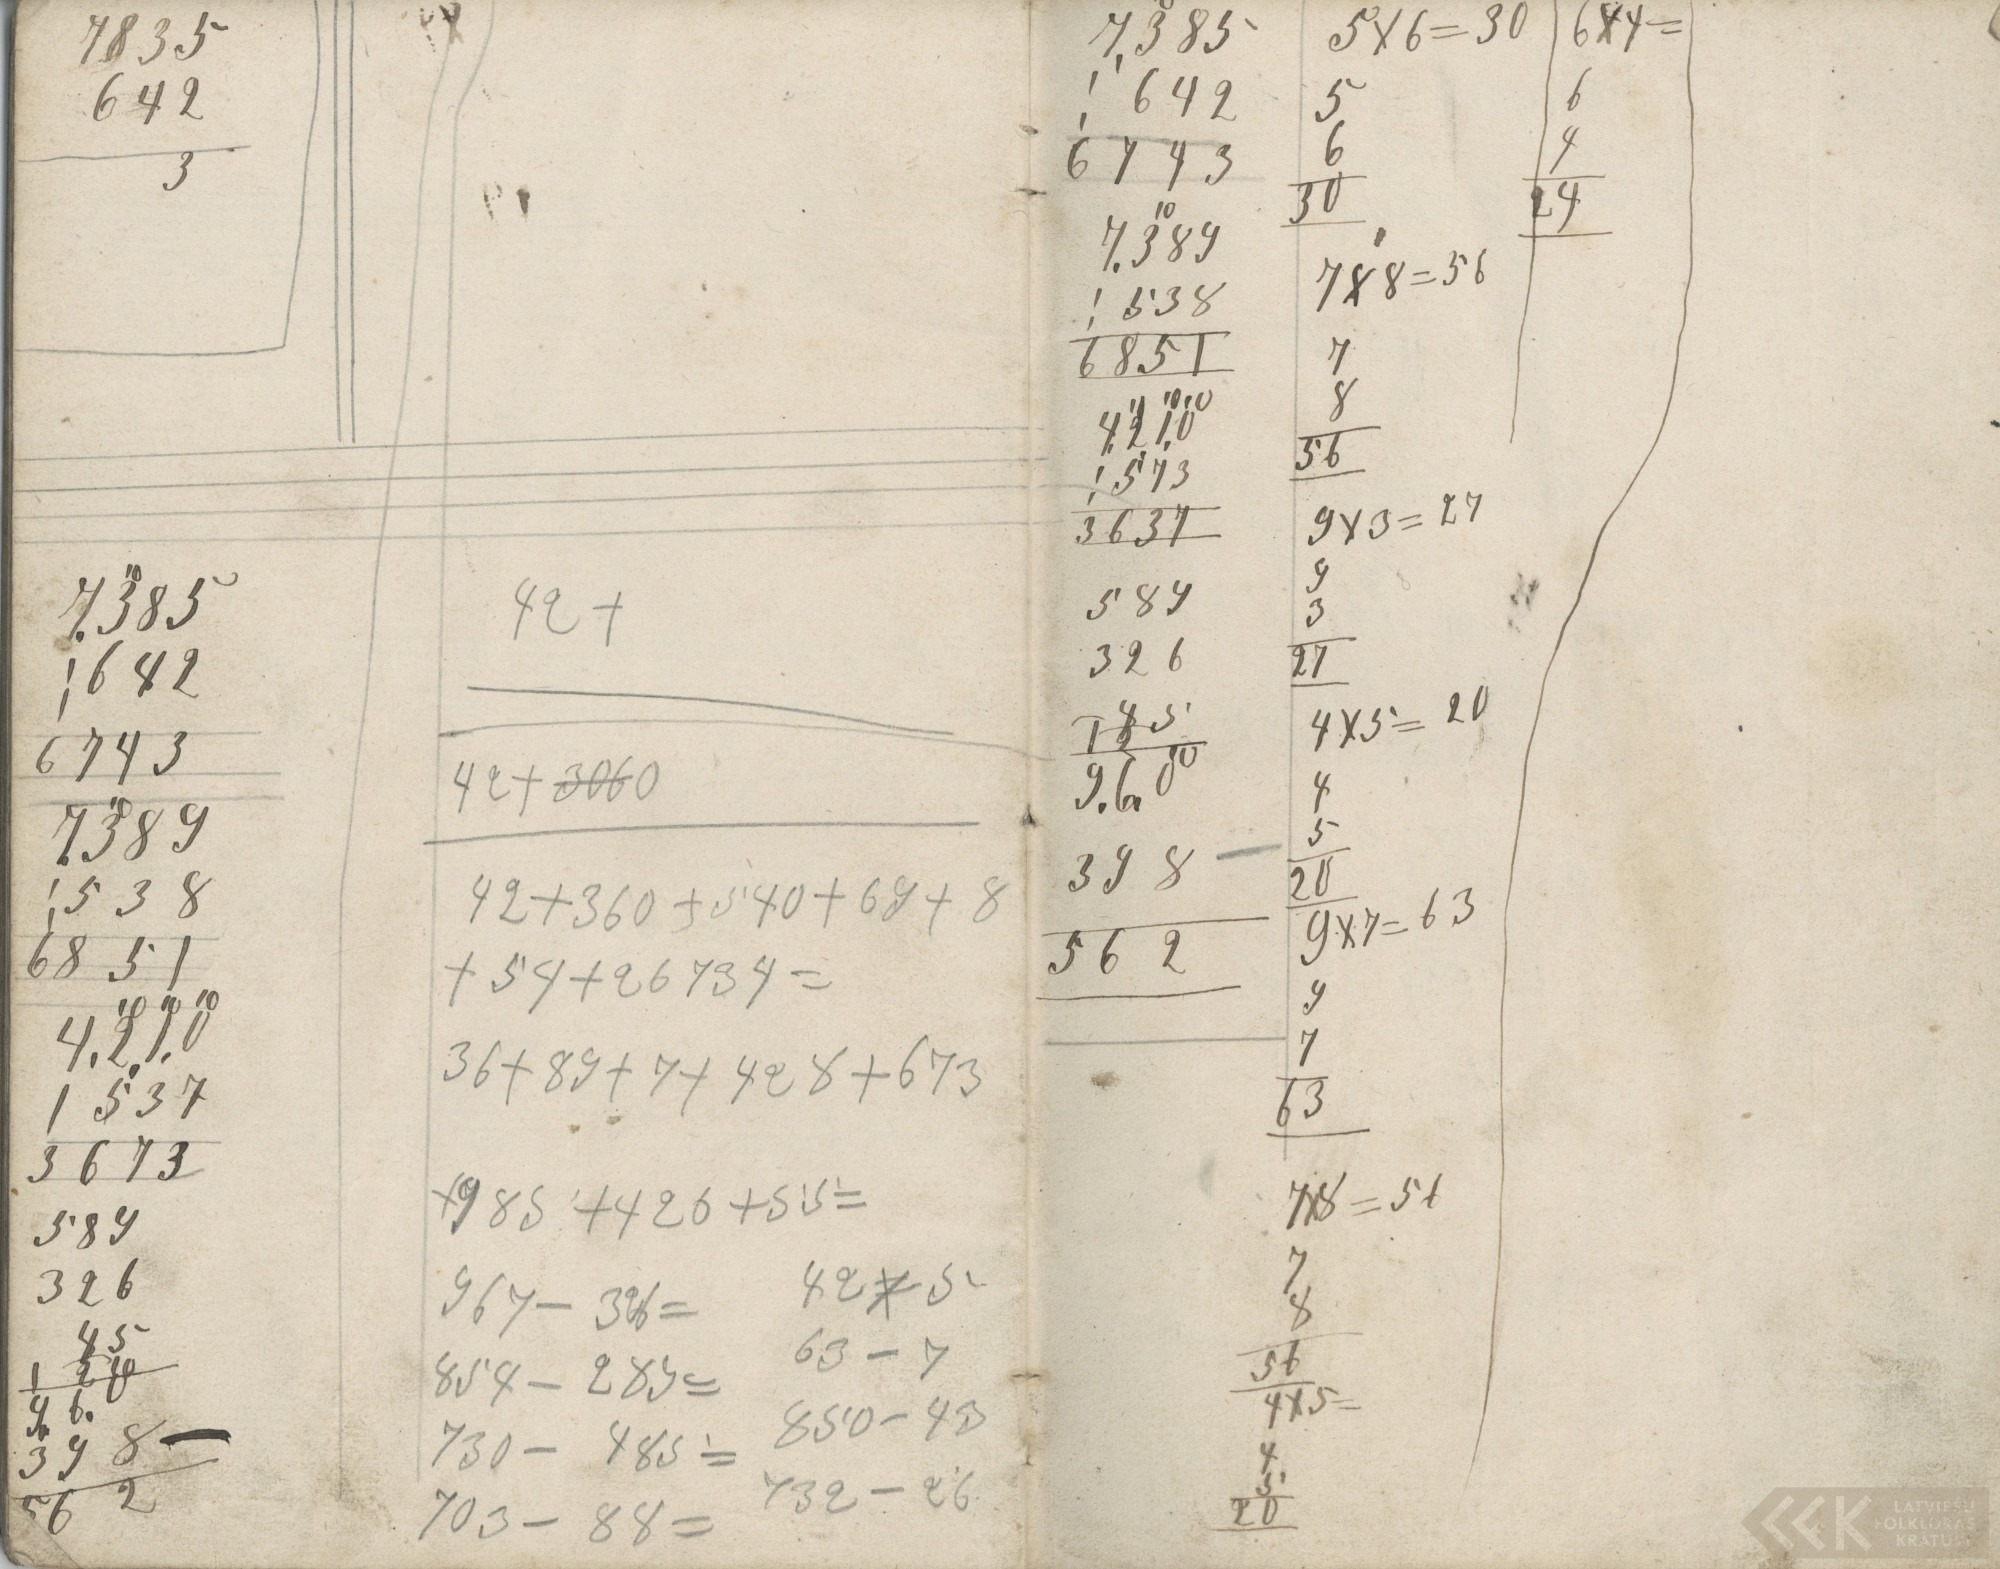 7835
642
3
10
7.385
1642
6743
10
7.389
1538
6851
10 10 10
4.2.1.0
1 537
3673
589
326
45
1 20
9.6.0
398 —
562
42 +
42 + 3060
42 + 360 + 540 + 69 + 8
+ 54 + 26734 =
36 + 89 + 7 + 428 + 673
+985 + 426 + 55 =
967 — 326 =
854 — 289 =
730 — 485 =
703 — 88 =
42 × 5
63 — 7
850 — 43
732 — 26
10
7.385
642
6743
10
7.389
1 538
6851
10 10 10
4.2.1.0
1573
3637
589
326
45
10
9.6.0
398 —
562
5×6=30
5
6
30
7×8=56
7
8
56
9×3=27
9
3
27
4×5=20
4
5
20
9×7=63
9
7
63
7×8=56
7
8
56
4×5=
4
5
20
6×4=
6
4
24
LATVIEŠU
FOLKLORAS
KRĀTUVE